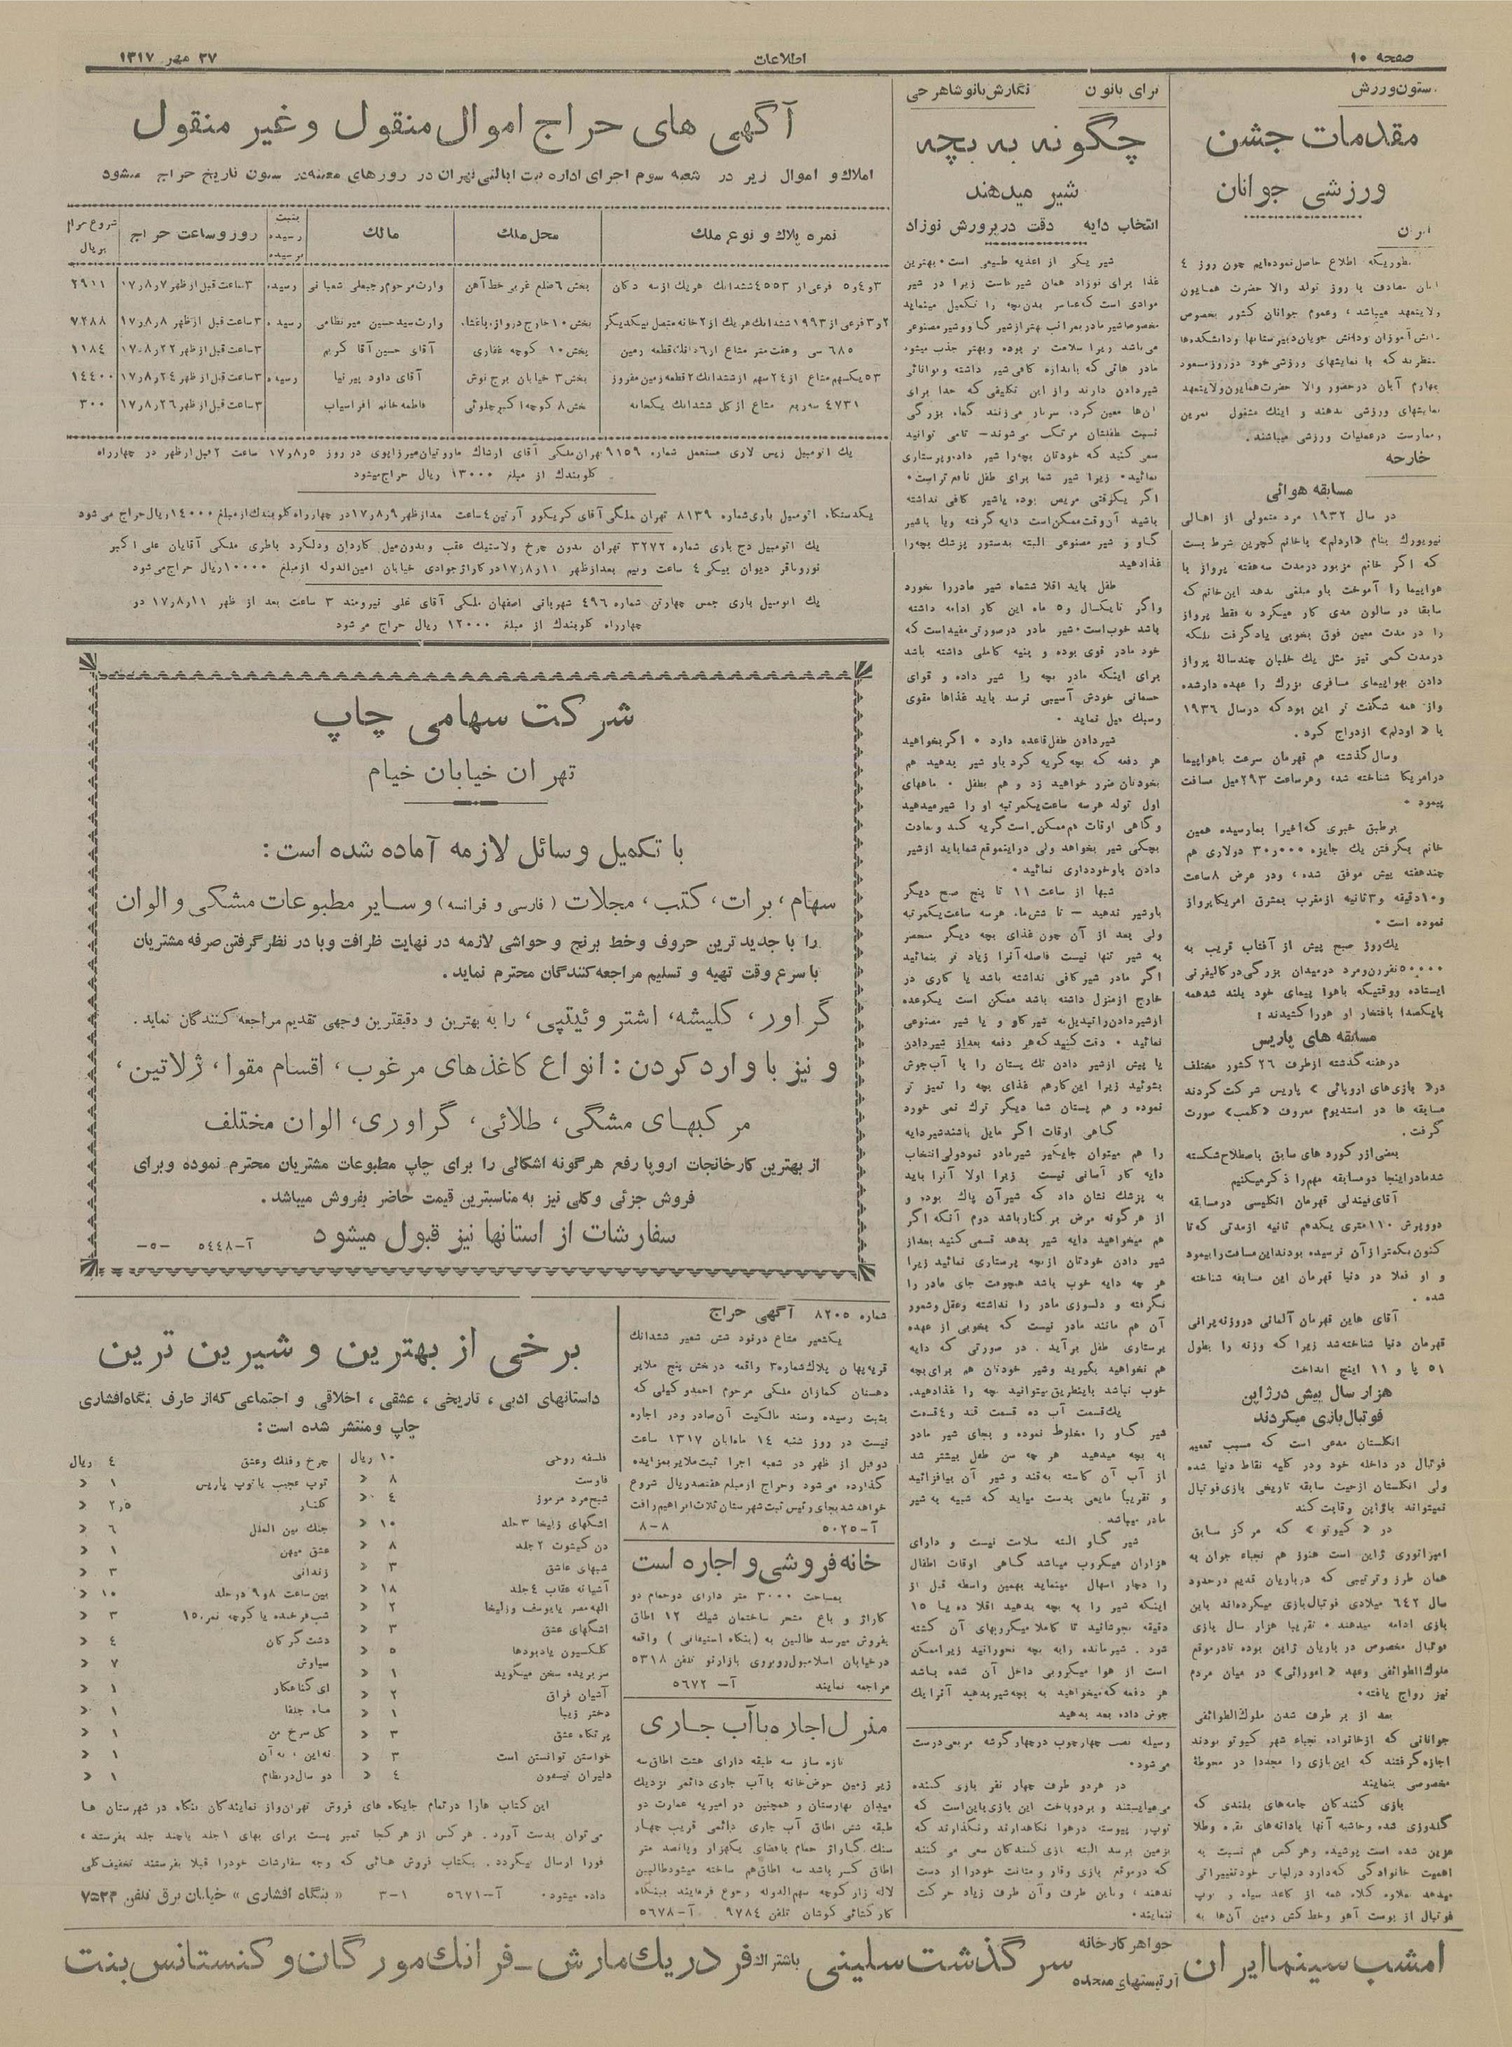 صفحه ۱۰
اطلاعات
۲۷ مهر ۱۳۱۷
ستون ورزش
مقدمات جشن
ورزشی جوانان
ایران
بطوریکه اطلاع حاصل نموده‌ایم چون روز ٤
آبان مصادف با روز تولد والا حضرت همایون
ولایتعهد میباشد، وعموم جوانان کشور بخصوص
دانش آموزان ودانش جویان دبیرستانها ودانشکده‌ها
چهارم آبان درحضور والا حضرت همایون ولایتعهد
نمایشهای ورزشی بدهند و اینك مشغول تمرین
وممارست درعملیات ورزشی میباشند.
خارجه
مسابقه هوائی
در سال ۱۹۳۲ مرد متمولی از اهالی
که اگر خانم مزبور درمدت سه هفته پرواز با
هواپیما را آموخت باو مبلغی بدهد این خانم که
سابقا در سالون مدی کار میکرد نه فقط پرواز
را در مدت معین فوق بخوبی یاد گرفت بلکه
درمدت کمی نیز مثل یك خلبان چندسالهٔ پرواز
دادن بهواپیمای مسافری بزرك را عهده دارشده
واز همه شگفت تر این بود که درسال ۱۹۳٦
با « اودلم» ازدواج کرد.
وسال گذشته هم قهرمان سرعت باهواپیما
درامریکا شناخته شده وهرساعت ۲۹۳ میل مسافت
پیمود.
برطبق خبری که اخیرا بما رسیده همین
خانم بگرفتن یك جایزه ۳۰٫۰۰۰ دولاری هم
چندهفته پیش موفق شده، ودر عرض ۸ ساعت
و۱۰ دقیقه و۳ ثانیه ازمغرب بمشرق امریکا پرواز
نموده است.
یك روز صبح پیش از آفتاب قریب به
۵۰٫۰۰۰ نفر زن ومرد درمیدان بزرگی در کالیفرنی
ایستاده ووقتیکه باهوا پیمای خود بلند شد همه
بایکصدا بافتخار او هورا کشیدند!
مسابقه های پاریس
درهفته گذشته ازطرف ۲٦ کشور مختلف
در« بازی‌های اروپائی » پاریس شرکت کردند
مسابقه ها در استدیوم معروف «کلمب» صورت
گرفت.
بعضی از رکورد های سابق باصطلاح شکسته
شد مادر اینجا دو مسابقه مهم را ذکر میکنیم
آقای فیندلی قهرمان انگلیسی درمسابقه
کنون بکمتر از آن نرسیده بودند این مسافت را پیمود
و او فعلا در دنیا قهرمان این مسابقه شناخته
شده.
آقای هاین قهرمان آلمانی در وزنه پرانی
قهرمان دنیا شناخته شد زیرا که وزنه را بطول
۵۱ پا و ۱۱ اینچ انداخت
هزار سال پیش در ژاپن
فوتبال بازی میکردند
انگلستان مدعی است که مسبب تعمیم
فوتبال در داخله خود ودر کلیه نقاط دنیا شده
ولی انگلستان ازحیث سابقه تاریخی بازی فوتبال
نمیتواند باژاپن رقابت کند
در « کیوتو » که مرکز سابق
امپراتوری ژاپن است هنوز هم نجباء جوان به
همان طرز وترتیبی که درباریان قدیم درحدود
سال ٦٤۲ میلادی فوتبال بازی میکرده‌اند باین
بازی ادامه میدهند. تقریبا هزار سال بازی
فوتبال مخصوص در باریان ژاپن بوده تادر موقع
نیز رواج یافته.
بعد از بر طرف شدن ملوك الطوائفی
جوانانی که ازخانواده نجباء شهر کیوتو بودند
اجازه گرفتند که این بازی را مجددا در محوطهٔ
مخصوصی بنمایند
بازی کنندگان جامه‌های بلندی که
اهمیت خانوادگی که دارد درلباس خود تغییراتی
فوتبال از پوست آهو وخط کش زمین آن‌ها به
برای بانوان
نگارش بانو شاهرحی
چگونه به بچه
شیر میدهند
انتخاب دایه دقت در پرورش نوزاد
شیر یکی از اغذیه طبیعی است. بهترین
غذا برای نوزاد همان شیر مادر است زیرا در شیر
موادی است که عناصر بدن بچه را تکمیل مینماید
مخصوصا شیر مادر بمراتب بهتر از شیر گاو و شیر مصنوعی
می‌باشد زیرا سلامت تر بوده وبهتر جذب میشود
مادر هائی که باندازه کافی شیر داشته وتوانائی
شیردادن دارند واز این تکلیفی که خدا برای
آن‌ها معین کرده سرباز میزنند گناه بزرگی
نسبت بطفلشان مرتکب می‌شوند – تامی توانید
سعی کنید که خودتان بچه را شیر داده وپرستاری
نمائید. زیرا شیر شما برای طفل نافع تر است.
اگر یکوقتی مریض بوده یاشیر کافی نداشته
باشید آنوقت ممکن است دایه گرفته ویا باشیر
گاو و شیر مصنوعی البته بدستور پزشك بچه را
غذا دهید
طفل باید اقلا ششماه شیر مادر را بخورد
واگر تا یکسال و۵ ماه این کار ادامه داشته
باشد خوب است. شیر مادر درصورتی مفید است که
خود مادر قوی بوده و بنیه کاملی داشته باشد
برای اینکه مادر بچه را شیر داده و قوای
جسمانی خودش آسیبی نرسد باید غذاها مقوی
وسبك میل نماید.
شیردادن طفل قاعده دارد. اگر بخواهید
هر دفعه که بچه گریه کرد باو شیر بدهید هم
بخودتان ضرر خواهید زد و هم بطفل. ماههای
اول تولد هرسه ساعت یکمرتبه او را شیر میدهید
و گاهی اوقات هم ممکن است گریه کند وبعادت
بچگی شیر بخواهد ولی در اینموقع شما باید از شیر
دادن باو خودداری نمائید.
شبها از ساعت ۱۱ تا پنج صبح دیگر
باو شیر ندهید – تا شش ماه هرسه ساعت یکمرتبه
ولی بعد از آن چون غذای بچه دیگر منحصر
به شیر تنها نیست فاصله آنرا زیاد تر بنمائید
اگر مادر شیر کافی نداشته باشد یا کاری در
خارج ازمنزل داشته باشد ممکن است یکوعده
از شیردادن را تبدیل به شیر گاو و یا شیر مصنوعی
نمائید. دقت کنید که هر دفعه بعد از شیردادن
یا پیش از شیر دادن تك پستان را با آب جوش
بشوئید زیرا این کار هم غذای بچه را تمیز تر
نموده و هم پستان شما دیگر ترك نمی خورد
گاهی اوقات اگر مایل باشند شیر دایه
را هم میتوان جایگیر شیر مادر نمود ولی انتخاب
دایه کار آسانی نیست زیرا اولا آنرا باید
به پزشك نشان داد که شیر آن پاك بوده و
از هر گونه مرض بر کنار باشد دوم آنکه اگر
هم میخواهید دایه شیر بدهد قسمی کنید بعد از
شیر دادن خودتان از بچه پرستاری نمائید زیرا
هر چه دایه خوب باشد هیچوقت جای مادر را
نگرفته و دلسوزی مادر را نداشته وعقل وشعور
آن هم مانند مادر نیست که بخوبی از عهده
پرستاری طفل برآید. در صورتی که دایه
هم نخواهید بگیرید وشیر خودتان هم برای بچه
خوب نباشد باینطریق میتوانید بچه را غذا دهید.
یك قسمت آب ده قسمت قند و٤ قسمت
شیر گاو را مخلوط نموده و بجای شیر مادر
به بچه میدهید هر چه سن طفل بیشتر شد
از آب آن کاسته به قند و شیر آن بیافزائید
و تقریبا مایعی بدست میاید که شبیه به شیر
مادر میباشد.
شیر گاو البته سلامت نیست و دارای
هزاران میکروب میباشد گاهی اوقات اطفال
را دچار اسهال مینماید بهمین واسطه قبل از
اینکه شیر را به بچه بدهید اقلا ده یا ۱۵
دقیقه بجوشانید تا کاملا میکربهای آن کشته
شود. شیر مانده را به بچه نخورانید زیرا ممکن
است از هوا میکروبی داخل آن شده باشد
هر دفعه که میخواهید به بچه شیر بدهید آنرا یك
جوش داده بعد بدهید
وسیله نصب چهار چوب در چهار گوشه مربعی درست
می‌شود.
در هردو طرف چهار نفر بازی کننده
می‌هایستند و بردوباخت این بازی باین است که
توپ را پیوسته درهوا نگاهدارند ونگذارند که
بزمین برسد البته بازی کنندگان سعی می کنند
که درموقع بازی وقار ومتانت خود را از دست
ندهند، وباین طرف وآن طرف زیاد حرکت
ننمایند.
آگهی های حراج اموال منقول و غیر منقول
املاك و اموال زیر در شعبه سوم اجرای اداره ثبت ایالتی تهران در روزهای معینه در ستون تاریخ حراج میشود
نمره پلاك و نوع ملك | محل ملك | مالك | بثبت رسیده نرسیده | روز وساعت حراج | شروع حراج بریال
۳و٤و۵ فرعی از ٤۵۵۳ ششدانك هریك از سه دکان | بخش ٦ ضلع غربی خط آهن | وارث مرحوم رجبعلی شعبانی | رسیده | ۳ساعت قبل از ظهر ۱۷٫۸٫۷ | ۲۹۱۱
۲و۳ فرعی از ۱۹۹۳ ششدانك هریك از ۲ خانه متصل بیکدیگر | بخش ۱۰ خارج دروازه باغشاه | وارث سید حسین میر نظامی | رسیده | ۳ساعت قبل از ظهر ۱۷٫۸٫۸ | ۷۲۸۸
٦۸۵ سی وهفت متر مشاع از ٦ دانك قطعه زمین | بخش ۱۰ کوچه غفاری | آقای حسین آقا کریم | ۳ساعت قبل از ظهر ۱۷٫۸٫۲۲ | ۱۱۸٤
۵۳ یکسهم مشاع از ۲٤ سهم از ششدانك ۲ قطعه زمین مفروز | بخش ۳ خیابان برج نوش | آقای داود پیرنیا | رسیده | ۳ساعت قبل از ظهر ۱۷٫۸٫۲٤ | ۱٤٤۰۰
٤۷۳۱ سه ربع مشاع از کل ششدانك یکخانه | بخش ۸ کوچه اکبر چلوئی | فاطمه خانم افراسیاب | ۳ساعت قبل از ظهر ۱۷٫۸٫۲٦ | ۳۰۰
یك اتومبیل زیس لاری مستعمل شماره ۹۱۵۹ تهران ملکی آقای ارشاك ماروتیان میرزایوی در روز ۱۷٫۸٫۵ ساعت ۲ قبل از ظهر در چهارراه
گلوبندك از مبلغ ۱۳۰۰۰ ریال حراج میشود
یکدستگاه اتومبیل باری شماره ۸۱۳۹ تهران ملکی آقای کریکور آرتین ٤ ساعت بعد از ظهر ۱۷٫۸٫۹ در چهارراه گلوبندك از مبلغ ۱٤۰۰۰ ریال حراج می شود
یك اتومبیل دج باری شماره ۳۲۷۲ تهران بدون چرخ ولاستیك عقب وبدون میل گاردان ودلکرد باطری ملکی آقایان علی اکبر
نوروباقر دیوان بیگی ٤ ساعت ونیم بعد از ظهر ۱۷٫۸٫۱۱ در گاراژ جوادی خیابان امین الدوله از مبلغ ۱۰۰۰۰ ریال حراج می‌شود
یك اتومبیل باری جمس چهارتن شماره ٤۹٦ شهربانی اصفهان ملکی آقای علی نیرومند ۳ ساعت بعد از ظهر ۱۷٫۸٫۱۱ در
چهارراه گلوبندك از مبلغ ۱۲۰۰۰ ریال حراج می شود
شرکت سهامی چاپ
تهران خیابان خیام
با تکمیل وسائل لازمه آماده شده است:
سهام، برات، کتب، مجلات (فارسی و فرانسه) و سایر مطبوعات مشکی و الوان
را با جدید ترین حروف وخط برنج و حواشی لازمه در نهایت ظرافت وبا در نظر گرفتن صرفه مشتریان
با سرع وقت تهیه و تسلیم مراجعه کنندگان محترم نماید.
گراور، کلیشه، اشتروئیتپی، را به بهترین و دقیقترین وجهی تقدیم مراجعه کنندگان نماید.
و نیز با وارد کردن: انواع کاغذهای مرغوب، اقسام مقوا، ژلاتین،
مرکبهای مشگی، طلائی، گراوری، الوان مختلف
از بهترین کارخانجات اروپا رفع هر گونه اشکالی را برای چاپ مطبوعات مشتریان محترم نموده وبرای
فروش جزئی وکلی نیز به مناسبترین قیمت حاضر بفروش میباشد.
سفارشات از استانها نیز قبول میشود
آ–۵٤٤۸ –۵–
شماره ۸۲۰۵ آگهی حراج
یکشعیر مشاع در نود شش شعیر ششدانك
قریه پهان پلاك شماره ۳ واقعه در بخش پنج ملایر
دهستان کمازان ملکی مرحوم احمد وکیلی که
بثبت رسیده وسند مالکیت آن صادر ودر اجاره
نیست در روز شنبه ۱٤ ماه آبان ۱۳۱۷ ساعت
دو قبل از ظهر در شعبه اجرا ثبت ملایر بمزایده
گذارده می شود وحراج از مبلغ هفتصد ریال شروع
خواهد شد بجای رئیس ثبت شهرستان ثلاث ابراهیم رافت
آ–۵۰۲۵ ۸–۸
خانه فروشی و اجاره است
بمساحت ۳۰۰۰ متر دارای دو حمام دو
گاراژ و باغ مشجر ساختمان شیك ۱۲ اطاق
بفروش میرسد طالبین به (بنگاه استیفانی) واقعه
در خیابان اسلامبول روبروی بازار نو تلفن ۵۳۱۸
مراجعه نمایند آ– ۵٦۷۲
منزل اجاره با آب جاری
تازه ساز سه طبقه دارای هشت اطاق سه
زیر زمین حوضخانه با آب جاری دائمی نزدیك
میدان بهارستان و همچنین در امیریه عمارت دو
طبقه شش اطاق آب جاری دائمی قریب چهار
سنك گاراژ حمام بافضای یکهزار وپانصد متر
اطاق کسر باشد سه اطاق هم ساخته میشود طالبین
لاله زار کوچه سهم الدوله رجوع فرمایند ببنگاه
کارگشائی کوشان تلفن ۹۷۸٤ آ–۵٦۷۸
برخی از بهترین و شیرین ترین
داستانهای ادبی، تاریخی، عشقی، اخلاقی و اجتماعی که از طرف بنگاه افشاری
چاپ و منتشر شده است:
فلسفه روحی ۱۰ ریال
فاوست ۸ «
شبح مرد مرموز ٤ «
اشگهای زلیخا ۳ جلد ۱۰ «
دن کیشوت ۲ جلد ۸ «
شبهای عاشق ۳ «
آشیانه عقاب ٤ جلد ۱۸ «
الهه مصر یا یوسف و زلیخا ۲ «
اشگهای عشق ۳ «
کلکسیون یادبودها ۵ «
سر بریده سخن میگوید ۱ «
آشیان فراق ۲ «
دختر زیبا ۱ «
پرتگاه عشق ۳ «
خواستن توانستن است ۳ «
دلیران تیسفون ٤ «
چرخ و فلك وعشق ٤ ریال
توپ عجیب یا توپ پاریس ۱ «
گلنار ۲٫۵ «
جنك بین الملل ٦ «
عشق میهن ۱ «
زندانی ۳ «
بین ساعت ۸ و۹ در جلد ۱۰ «
شب فرخنده یا کوچه نمره ۱۵ ۳ «
دشت گرگان ٤ «
سیاوش ۷ «
ای گناهکار ۱ «
ماه جلفا ۱ «
گل سرخ من ۱ «
نه این، نه آن ۱ «
دو سال در نظام ۱ «
این کتاب هارا در تمام جایگاه های فروش تهران واز نمایندگان بنگاه در شهرستان ها
می‌توان بدست آورد. هر کس از هر کجا تمبر پست برای بهای ۱ جلد یا چند جلد بفرستد،
فورا ارسال میگردد. بکتاب فروش هائی که وجه سفارشات خود را قبلا بفرستند تخفیف کلی
داده میشود. آ–۵٦۷۱ ۳–۱ « بنگاه افشاری » خیابان برق تلفن ۷۵۲۴
امشب سینما ایران
جواهر کارخانه
آرتیستهای متحده
سر گذشت سلینی باشتراك فردریك مارش – فرانك مورگان و کنستانس بنت